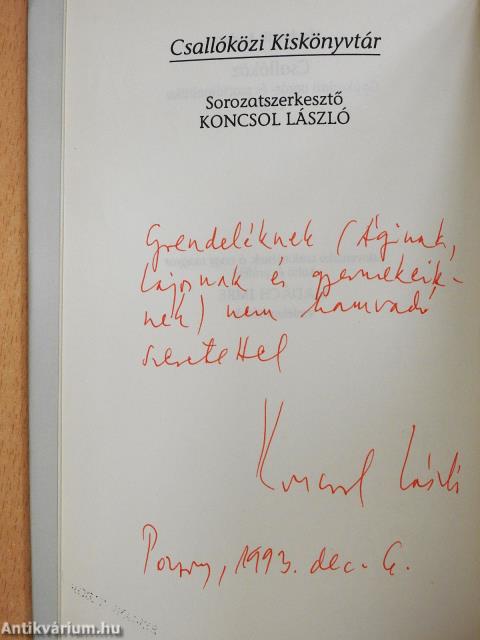 Csallóközi Kiskönyvtár
Sorozatszerkesztő
KONCSOL LÁSZLÓ
Grendeléknek (Áginak,
Lajosnak és gyermekeik-
nek) nem hamvadó
szeretettel
Koncsol László
Pozsony, 1993. dec. 6.
Antikvárium.hu